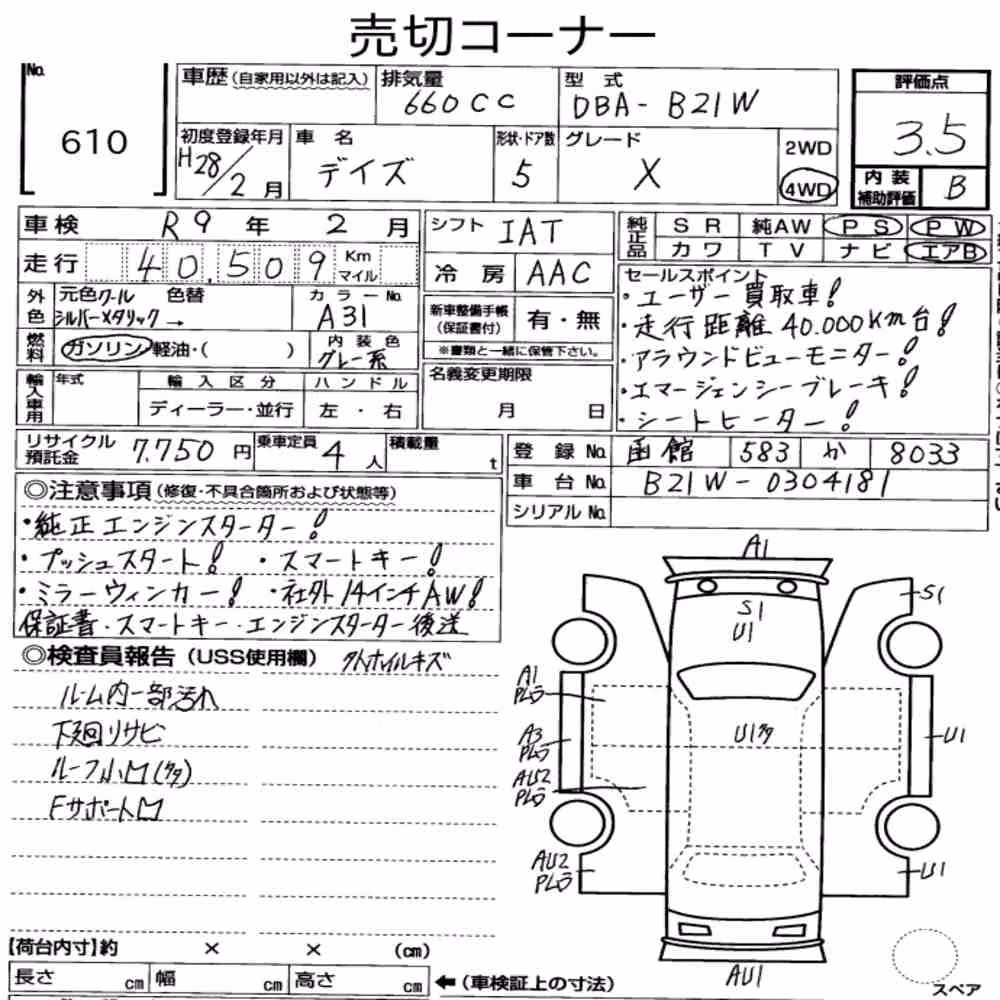 売切コーナー
No.
610
車歴(自家用以外は記入)
排気量
660cc
型 式
DBA-B21W
評価点
3.5
初度登録年月
H28/2月
車 名
デイズ
形状・ドア数
5
グレード
X
2WD
4WD
内装
補助評価
B
車検 R9年 2月
走行 40,509 Km
マイル
外色
元色 クール 色替
シルバーメタリック→
カラーNo.
A31
燃料
ガソリン・軽油・( )
内装色
グレー系
輸入車用
年式
輸入区分
ディーラー・並行
ハンドル
左・右
シフト IAT
冷房 AAC
新車整備手帳
(保証書付)
有・無
※書類と一緒に保管下さい。
名義変更期限
月 日
純正品
SR 純AW PS PW
カワ TV ナビ エアB
セールスポイント
・ユーザー買取車!
・走行距離40.000Km台!
・アラウンドビューモニター!
・エマージェンシーブレーキ!
・シートヒーター!
リサイクル
預託金
7.750円
乗車定員
4人
積載量
t
登録No. 函館 583 か 8033
車台No. B21W-0304181
シリアルNo.
◎注意事項(修復・不具合箇所および状態等)
・純正エンジンスターター!
・プッシュスタート! ・スマートキー!
・ミラーウィンカー! ・社外14インチAW!
保証書・スマートキー・エンジンスターター後送
◎検査員報告(USS使用欄) 外ホイルキズ
ルーム内一部汚れ
下廻りサビ
ルーフ小凹(タタ)
Fサポート凹
A1
S1
U1
S1
A1
Pムラ
A3
Pムラ
AU2
Pムラ
U1タタ
U1
AU2
Pムラ
U1
AU1
スペア
【荷台内寸】約 × × (cm)
長さ cm 幅 cm 高さ cm
←(車検証上の寸法)